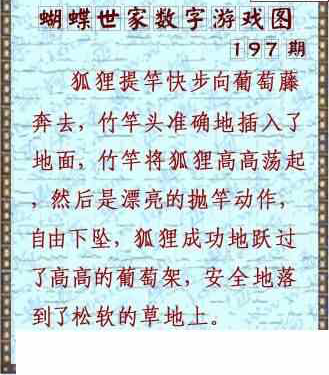 蝴蝶世家数字游戏图
197期
狐狸提竿快步向葡萄藤
奔去，竹竿头准确地插入了
地面，竹竿将狐狸高高荡起
，然后是漂亮的抛竿动作，
自由下坠，狐狸成功地跃过
了高高的葡萄架，安全地落
到了松软的草地上。